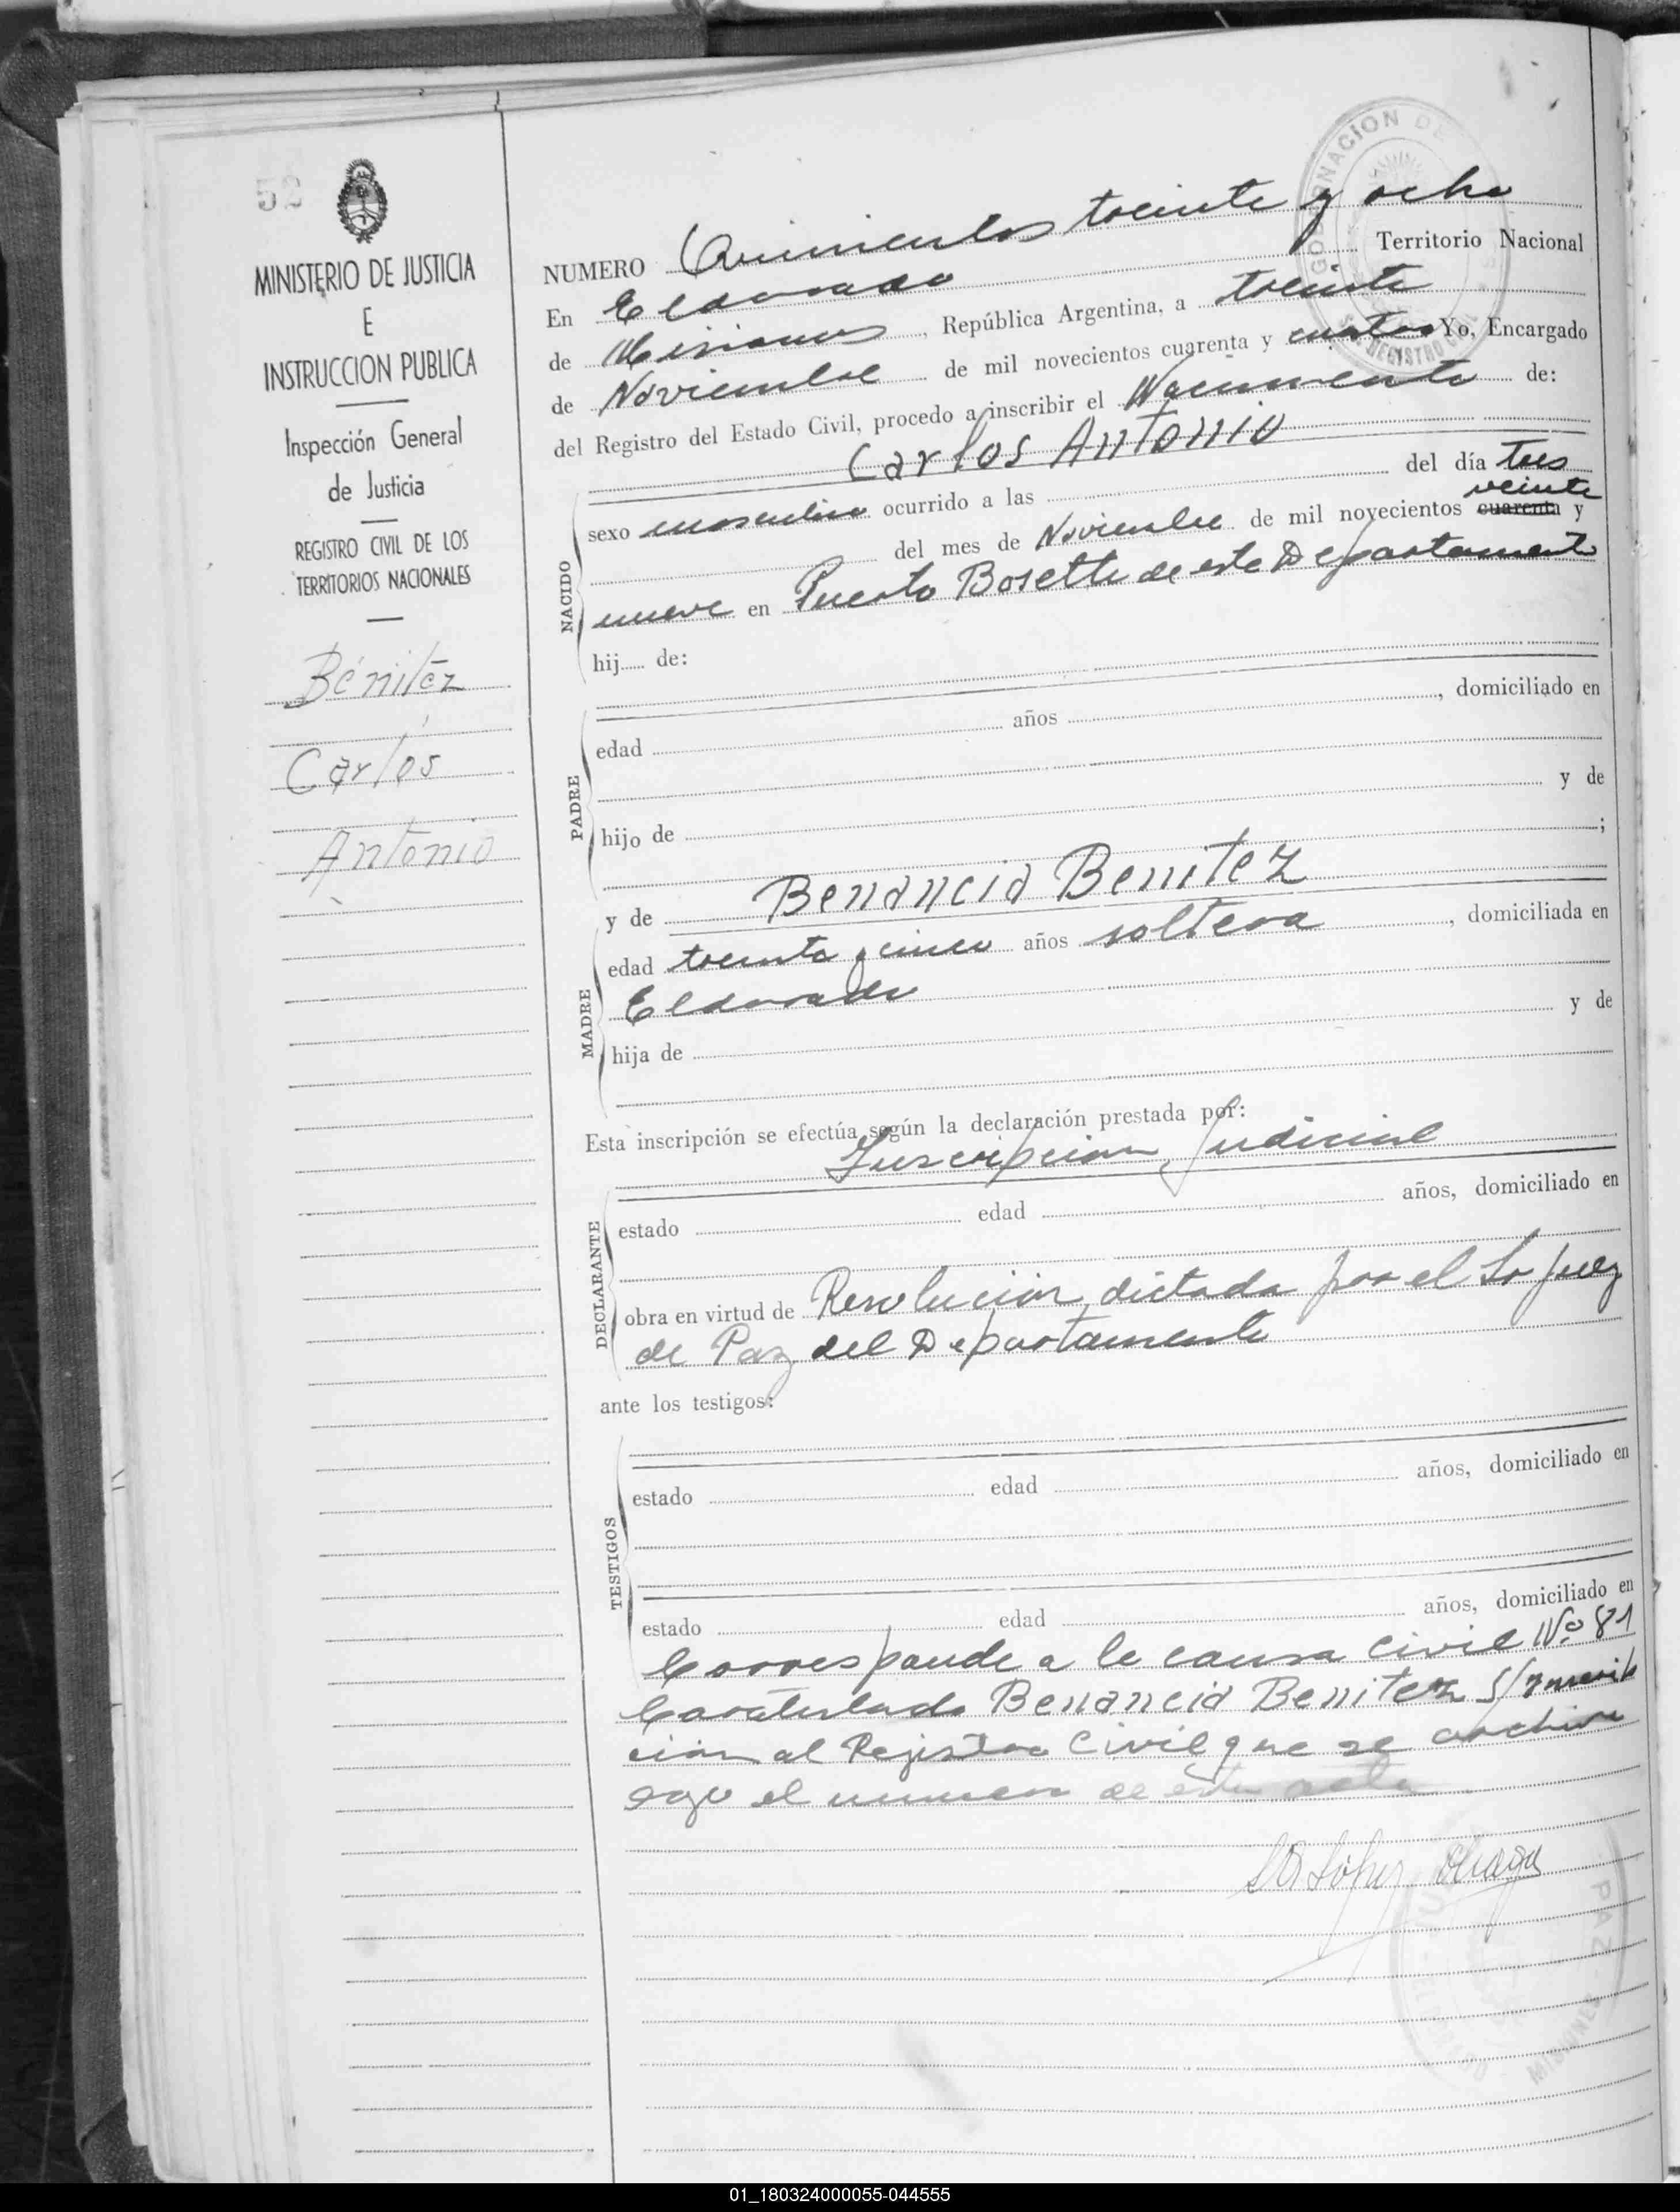 52
MINISTERIO DE JUSTICIA
E
INSTRUCCION PUBLICA
Inspección General
de Justicia
REGISTRO CIVIL DE LOS
TERRITORIOS NACIONALES
Bénitéz
Carlos
Antonio
GOBERNACION DE
REGISTRO CIVIL
NUMERO Quinientos treinta y ocho
En Eldorado Territorio Nacional
de Misiones, República Argentina, a treinta
de Noviembre de mil novecientos cuarenta y cuatro Yo, Encargado
del Registro del Estado Civil, procedo a inscribir el Nacimiento de:
Carlos Antonio
NACIDO
sexo masculino ocurrido a las del día tres
veinte
del mes de Noviembre de mil novecientos cuarenta y
nueve en Puerto Bosetti de este Departamento
hij de:
PADRE
edad años , domiciliado en
hijo de y de
;
MADRE
y de Benancia Benitez
edad treinta y cinco años soltera , domiciliada en
Eldorado
hija de y de
Esta inscripción se efectúa según la declaración prestada por:
Inscripcion Judicial
DECLARANTE
estado edad años, domiciliado en
obra en virtud de Resolucion dictada por el Sr Juez
de Paz del Departamento
ante los testigos:
TESTIGOS
estado edad años, domiciliado en
estado edad años, domiciliado en
Corresponde a la causa civil Nº 81
Caratulada Benancia Benitez S/Inscrip
cion al Registro Civil que se archiva
bajo el numero de esta acta
PAZ
MISIONES
01_180324000055-044555